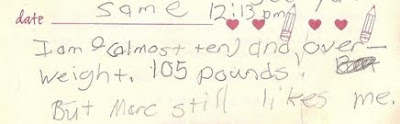 date same 12:13 pm
I am 9 (almost ten) and over-
weight. 105 pounds.
But Marc still likes me.